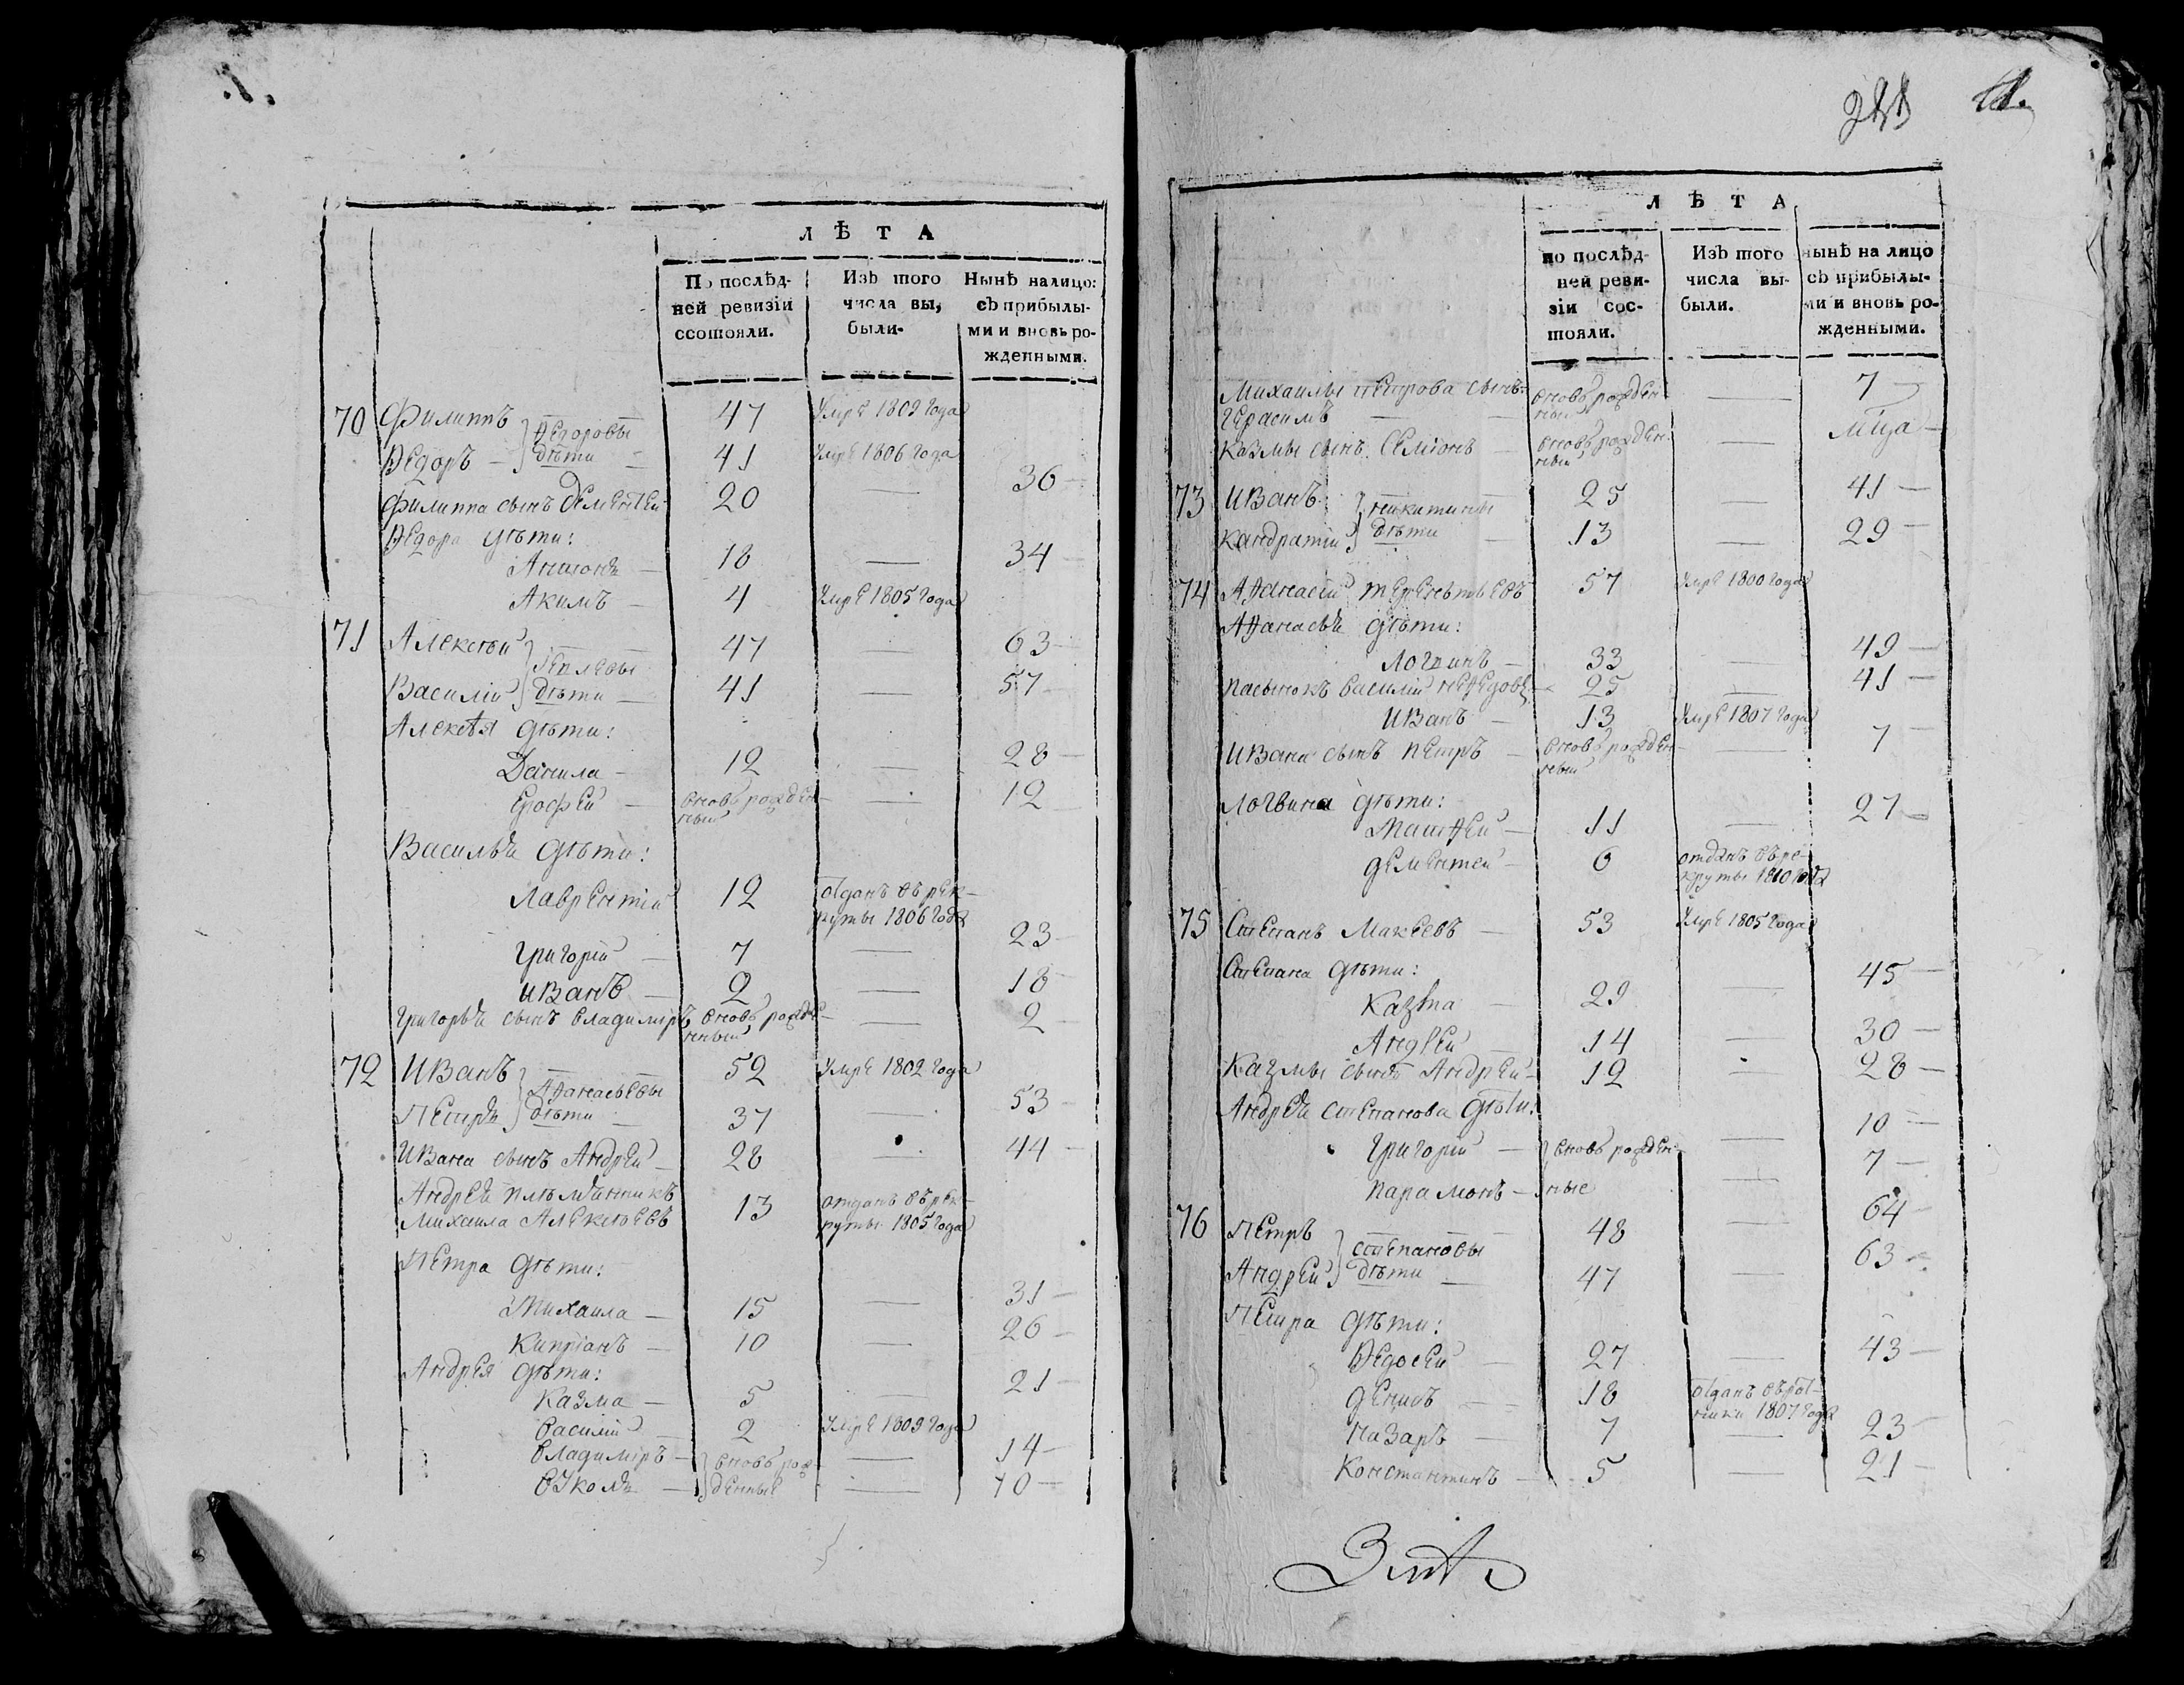 ЛѢТА
По послѣд-
ней ревизіи
ссотояли.
Изъ того
числа вы,
были-
Нынѣ налицо:
съ прибылы-
ми и вновь ро-
жденными.
70 Филиппъ 47 Умре 1809 года
Ѳедоровы
Ѳедоръ — дѣти — 41 Умре 1806 года
Филиппа сынъ Дементеи 20 — 36 —
Ѳедора дѣти:
Антонъ — 18 — 34 —
Акимъ — 4 Умре 1805 года
71 Алексѣи 47 — 63 —
Василіи дѣти — 41 — 57 —
Алексѣя дѣти:
Данила — 12 — 28 —
Ерофеи — вновь рожден- — 12
ныи
Василья дѣти:
Лаврентіи 12 отданъ въ рек-
руты 1806 года
Григоріи — 7 — 23 —
Иванъ — 2 — 18 —
Григорья сынъ Владиміръ вновь рожде- — 2 —
нныи
72 Иванъ 52 Умре 1802 года
Афанасьевы
Петръ дѣти — 37 — 53 —
Ивана сынъ Андреи — 28 — 44 —
Андрея племянникъ
Михаила Алексѣевъ 13 отданъ въ рек-
руты 1805 года
Петра дѣти:
Михаила — 15 — 31 —
Кипріанъ — 10 — 26 —
Андрея дѣти:
Казма — 5 — 21 —
Василіи — 2 Умре 1809 года
Владиміръ — вновь рож- — 14 —
Вуколъ — денные — 10 —
ЛѢТА
по послѣд-
ней реви-
зіи сос-
тояли.
Изъ того
числа вы-
были.
нынѣ на лицо
съ прибылы-
ми и вновь ро-
жденными.
Михаилы Петрова сынъ вновь рожден- — 7 —
Герасимъ — ныи
Казмы сынъ Семіонъ — вновь рожден- — мца —
ныи
73 Иванъ 25 — 41 —
Никитины
Кандратіи дѣти — 13 — 29 —
74 Афанасіи Терентьевъ 57 Умре 1800 года
Афанасья дѣти:
Логвинъ — 33 — 49 —
пасынокъ Василіи — 25 — 41 —
Иванъ — 13 Умре 1807 года
Ивана сынъ Петръ — вновь рожден- — 7
ныи
Логвина дѣти:
Матфеи — 11 — 27 —
Дементеи — 6 отданъ въ ре-
круты 1810 года
75 Степанъ Макѣевъ — 53 Умре 1805 года
Степана дѣти:
Казма — 29 — 45 —
Андреи — 14 — 30 —
Казмы сынъ Андреи — 12 — 28 —
Андрея Степанова дѣти:
Григоріи — вновь рожден- — 10 —
Парамонъ — ные — 7 —
76 Петръ 48 — 64 —
Степановы
Андреи дѣти — 47 — 63 —
Петра дѣти:
Ѳедосеи — 27 — 43 —
Денисъ — 18 отданъ въ рат-
ники 1807 года
Назаръ — 7 — 23 —
Константинъ — 5 — 21 —